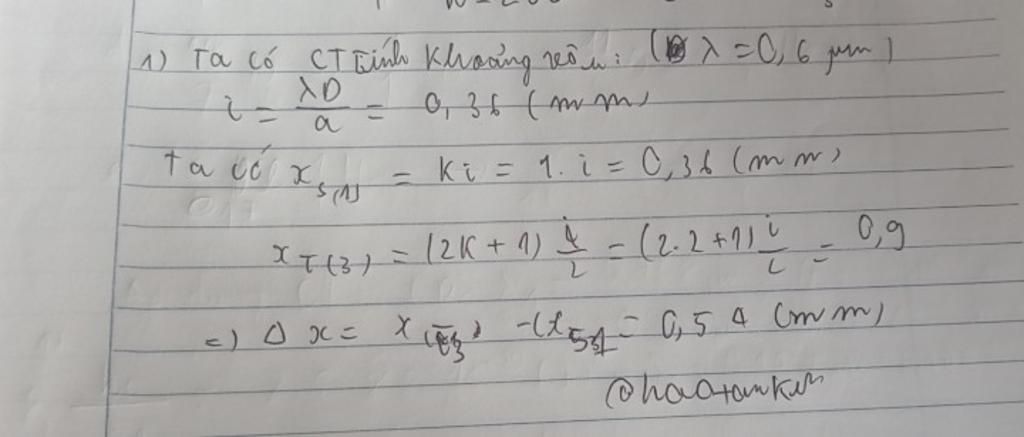 1) Ta có CT tính khoảng vân: (λ = 0,6 μm)
i = λD/a = 0,36 (mm)
Ta có x_s(1) = ki = 1.i = 0,36 (mm)
x_T(3) = (2k + 1) i/2 = (2.2+1) i/2 = 0,9
=) Δx = x_(t3) - x_s1 = 0,54 (mm)